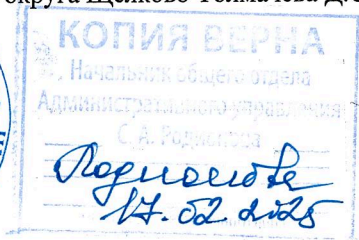 округа Щёлково Толмачева Д.
КОПИЯ ВЕРНА
Начальник общего отдела
Административного управления
С. А. Родионова
Родионова
17.02.2025